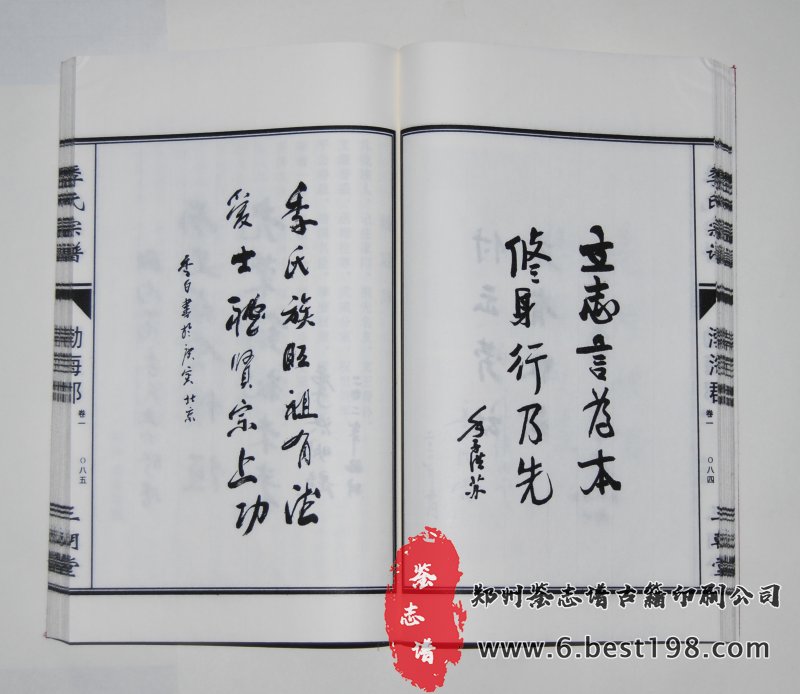 立志言为本
修身行乃先
季氏族旺祖有法
爱士礼贤宗上功
季白书於庚寅北京
季氏宗谱
渤海郡
卷一
〇八四
三朝堂
季氏宗谱
渤海郡
卷一
〇八五
三朝堂
鉴志谱
郑州鉴志谱古籍印刷公司
www.6.best198.com